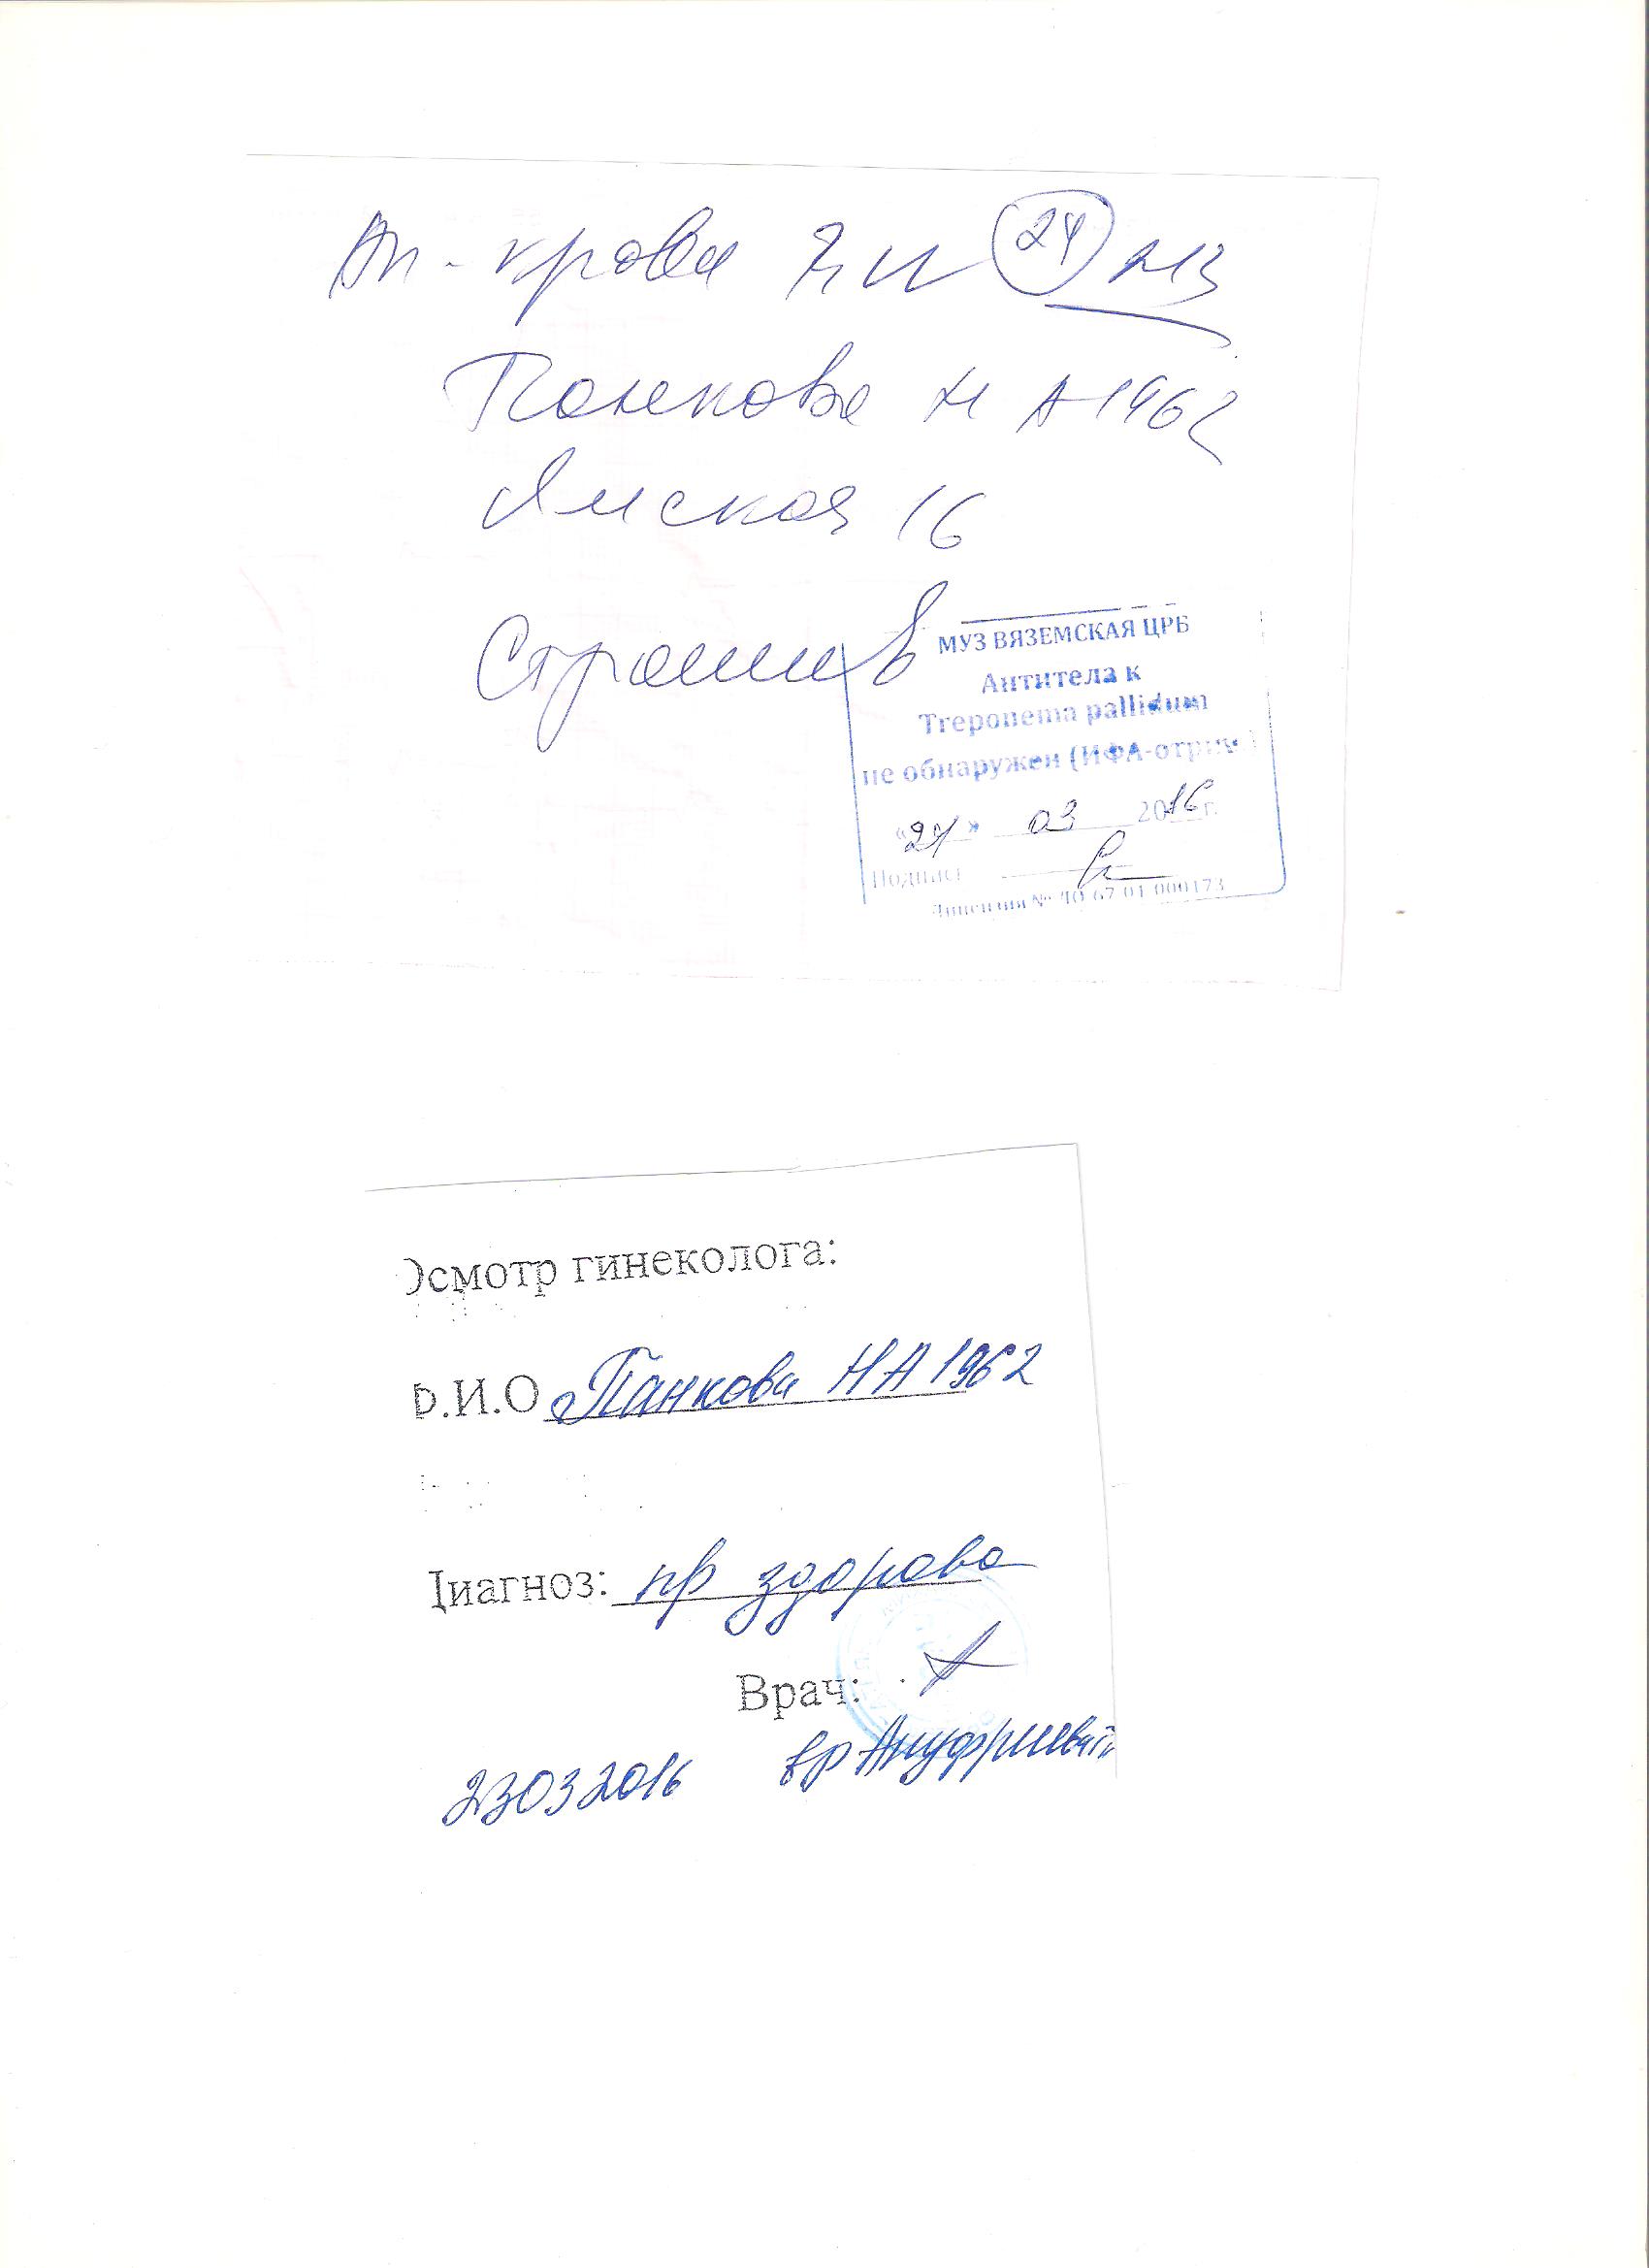 Ан-крови
24
Панкова Н А 1962
Ямская 16
МУЗ ВЯЗЕМСКАЯ ЦРБ
Антитела к
Treponema pallidum
не обнаружен (ИФА-отриц
« » 03 2016 г.
Подпись
Лицензия № ЛО-67-01-000173
Осмотр гинеколога:
Ф.И.О Панкова НА 1962
Диагноз: пр здорова
Врач:
23032016 вр Ануфриева